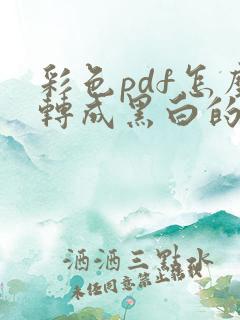 彩色pdf怎麼
轉成黑白的
洒洒三點水
未任同意禁止轉載